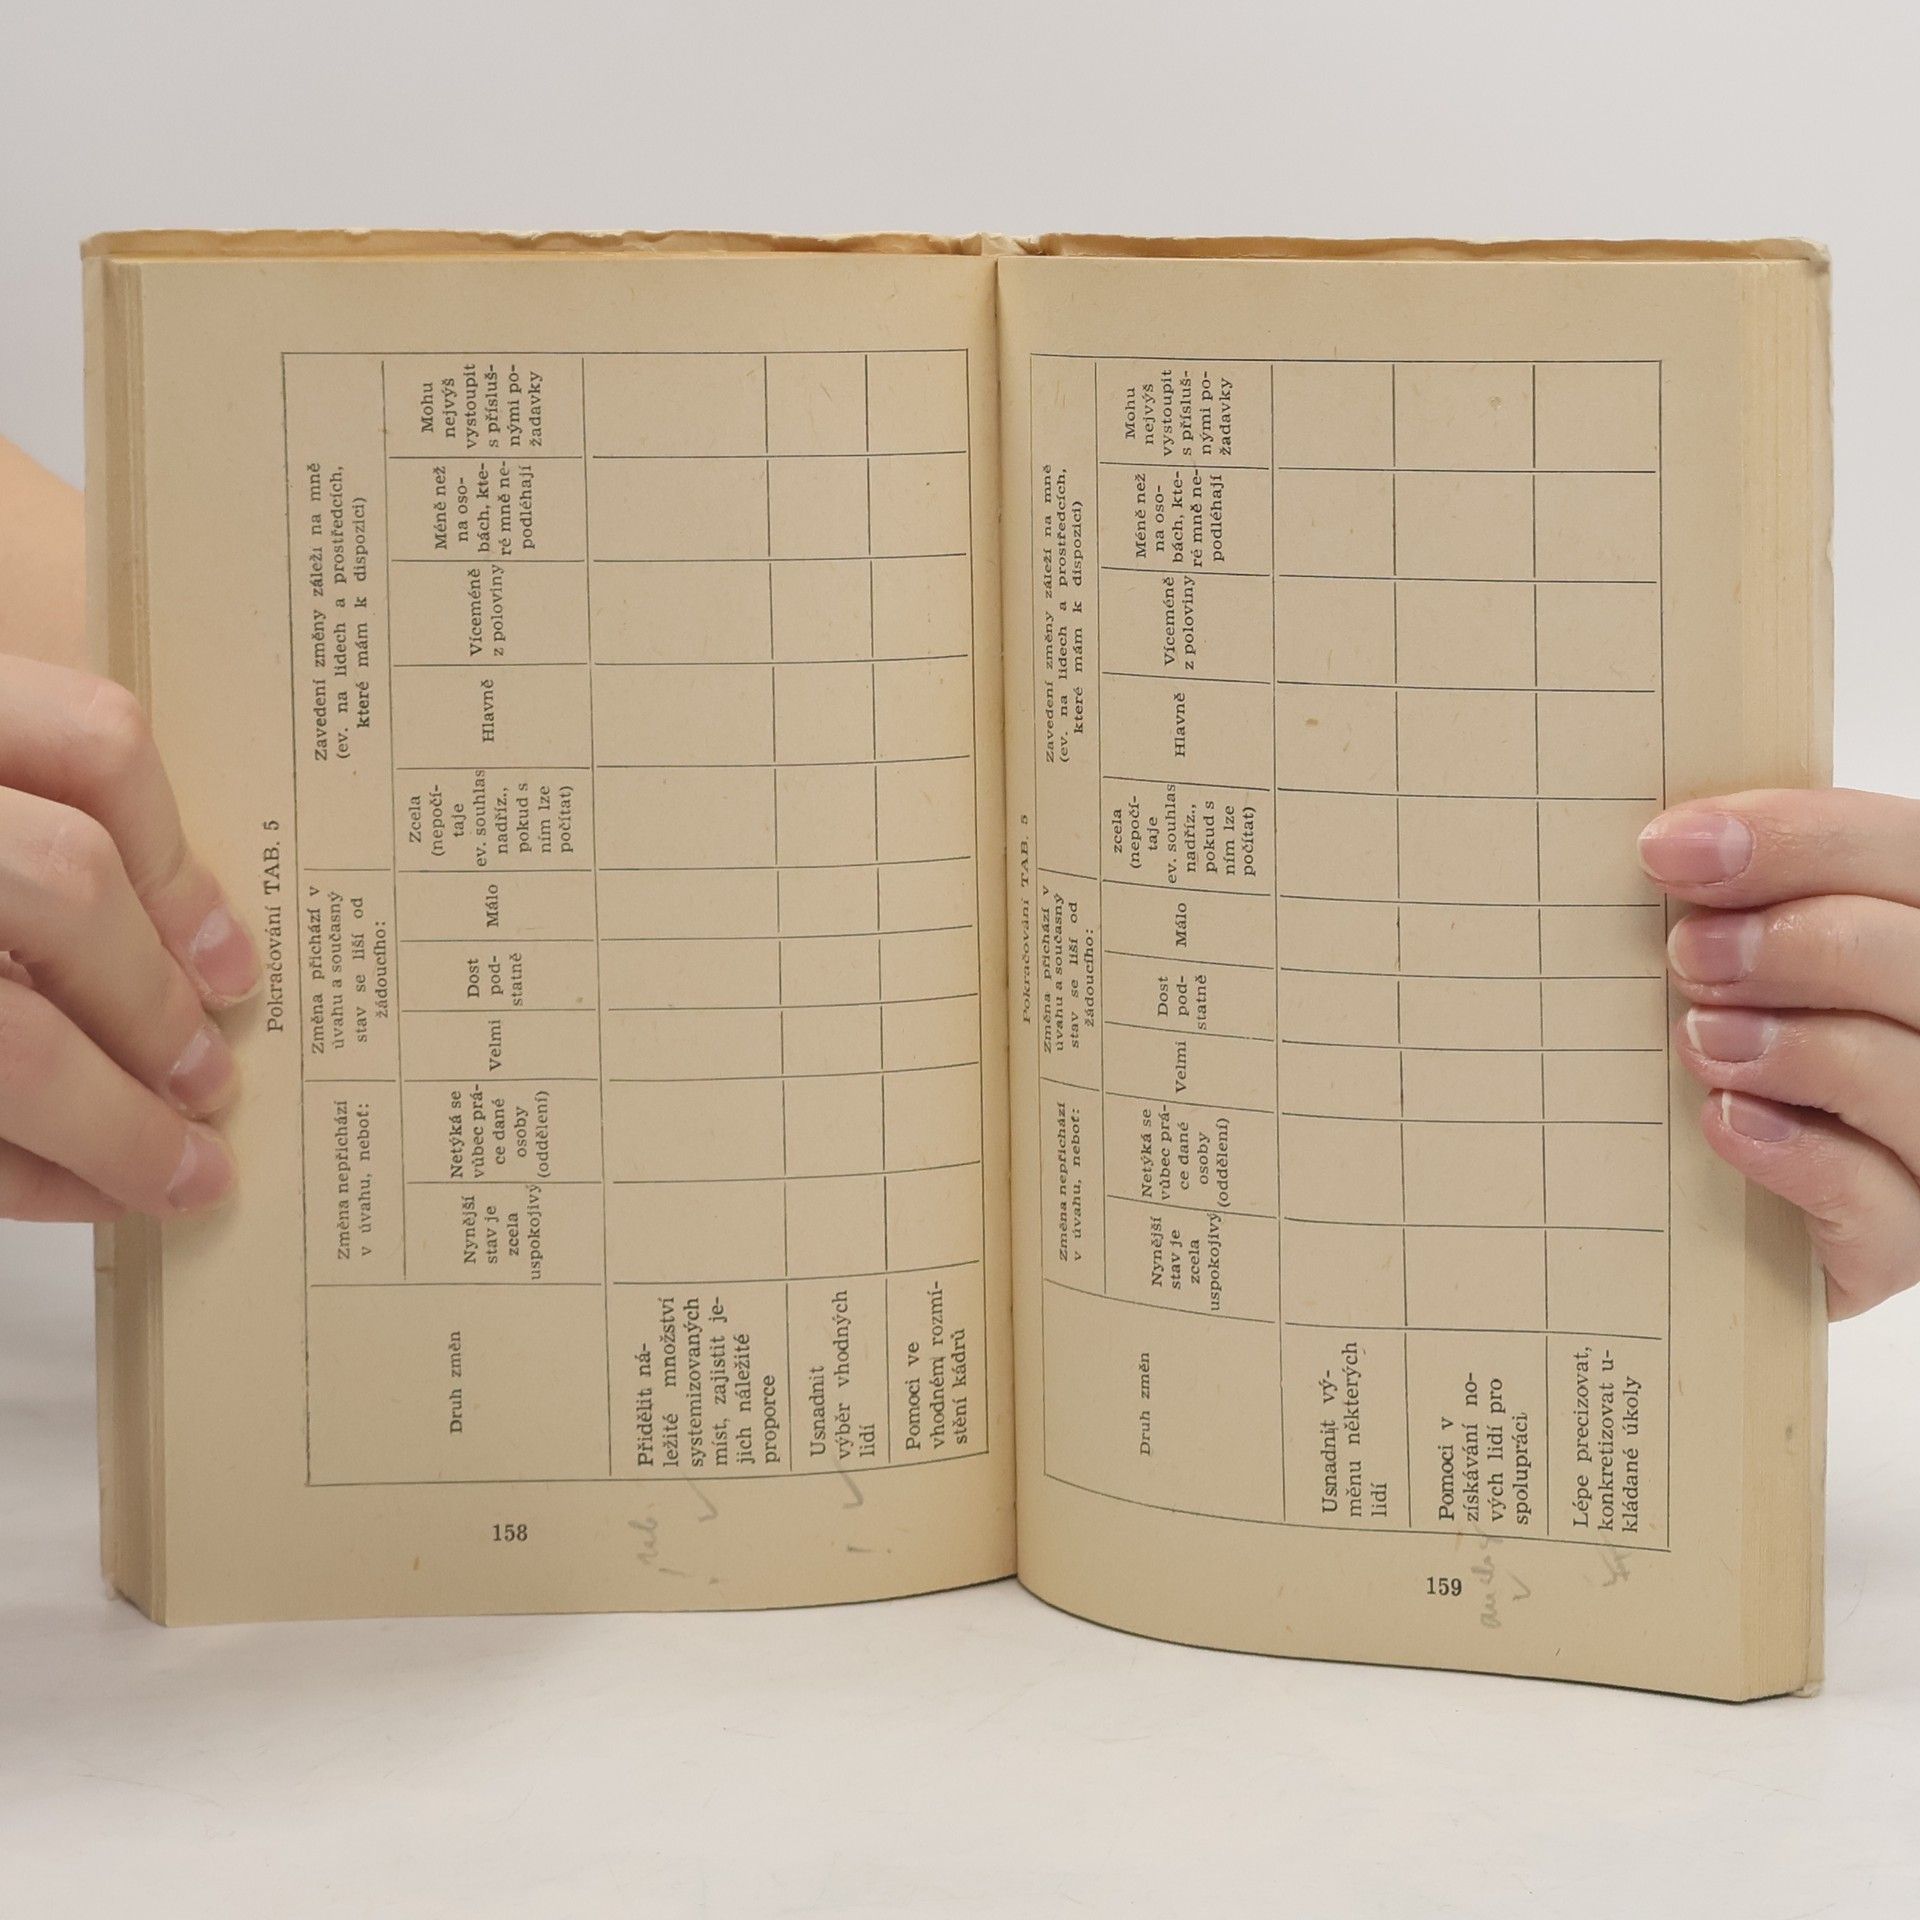 Pokračování TAB. 5
Druh změn
Změna nepřichází
v úvahu, neboť:
Nynější
stav je
zcela
uspokojivý
Netýká se
vůbec prá-
ce dané
osoby
(oddělení)
Změna přichází v
úvahu a současný
stav se liší od
žádoucího:
Velmi
Dost
pod-
statně
Málo
Zavedení změny záleží na mně
(ev. na lidech a prostředcích,
které mám k dispozici)
Zcela
(nepočí-
taje
ev. souhlas
nadříz.,
pokud s
ním lze
počítat)
Hlavně
Víceméně
z poloviny
Méně než
na oso-
bách, kte-
ré mně ne-
podléhají
Mohu
nejvýš
vystoupit
s přísluš-
nými po-
žadavky
Přidělit ná-
ležité množství
systemizovaných
míst, zajistit je-
jich náležité
proporce
Usnadnit
výběr vhodných
lidí
Pomoci ve
vhodném rozmí-
stění kádrů
158
Pokračování TAB. 5
Druh změn
Změna nepřichází
v úvahu, neboť:
Nynější
stav je
zcela
uspokojivý
Netýká se
vůbec prá-
ce dané
osoby
(oddělení)
Změna přichází v
úvahu a současný
stav se liší od
žádoucího:
Velmi
Dost
pod-
statně
Málo
Zavedení změny záleží na mně
(ev. na lidech a prostředcích,
které mám k dispozici)
zcela
(nepočí-
taje
ev. souhlas
nadříz.,
pokud s
ním lze
počítat)
Hlavně
Víceméně
z poloviny
Méně než
na oso-
bách, kte-
ré mně ne-
podléhají
Mohu
nejvýš
vystoupit
s přísluš-
nými po-
žadavky
Usnadnit vý-
měnu některých
lidí
Pomoci v
získávání no-
vých lidí pro
spolupráci
Lépe precizovat,
konkretizovat u-
kládané úkoly
159